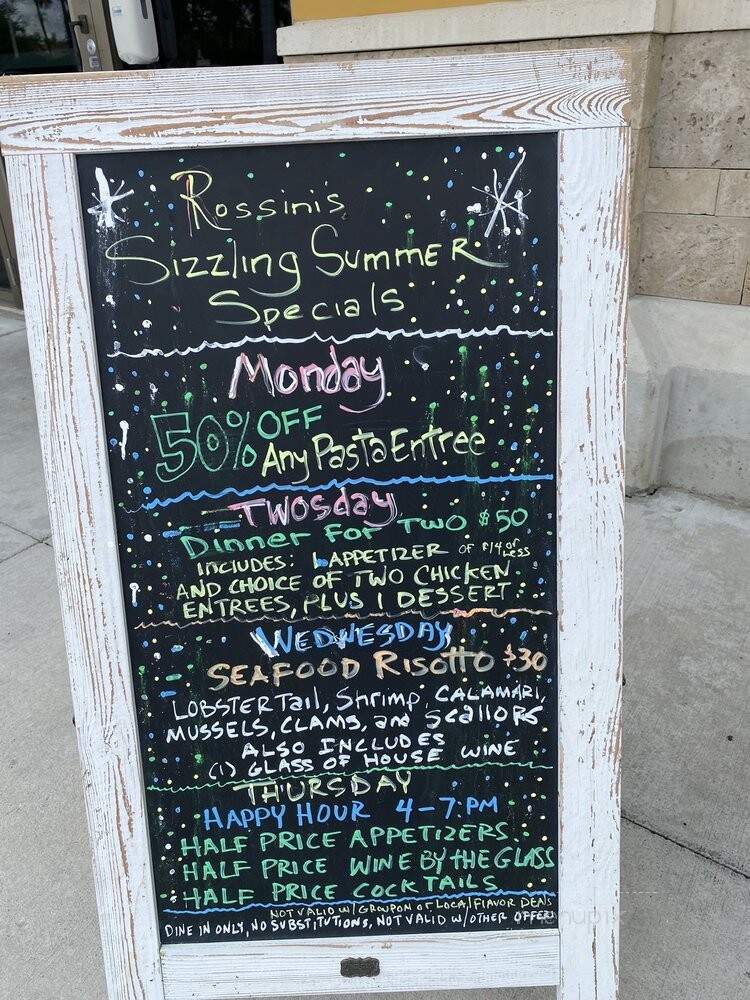 Rossini's
Sizzling Summer
Specials
Monday
50% OFF
Any Pasta Entree
TWOsday
Dinner For TWO $50
INCLUDES: 1 APPETIZER OF $14 or Less
AND CHOICE OF TWO CHICKEN
ENTREES, PLUS 1 DESSERT
WEDNESDAY
SEAFOOD Risotto $30
LOBSTER Tail, Shrimp, CALAMARI,
MUSSELS, CLAMS, and Scallops
ALSO INCLUDES
(1) GLASS OF HOUSE WINE
THURSDAY
HAPPY HOUR 4-7:PM
HALF PRICE APPETIZERS
HALF PRICE WINE BY tHE GLASS
HALF PRICE COCKTAILS
NOT VALID W/ GROUPON or Local FlAVOR DEALS
DINE IN ONLY, NO SUBSTITUTIONS, NOT VALID W/OTHER OFFER